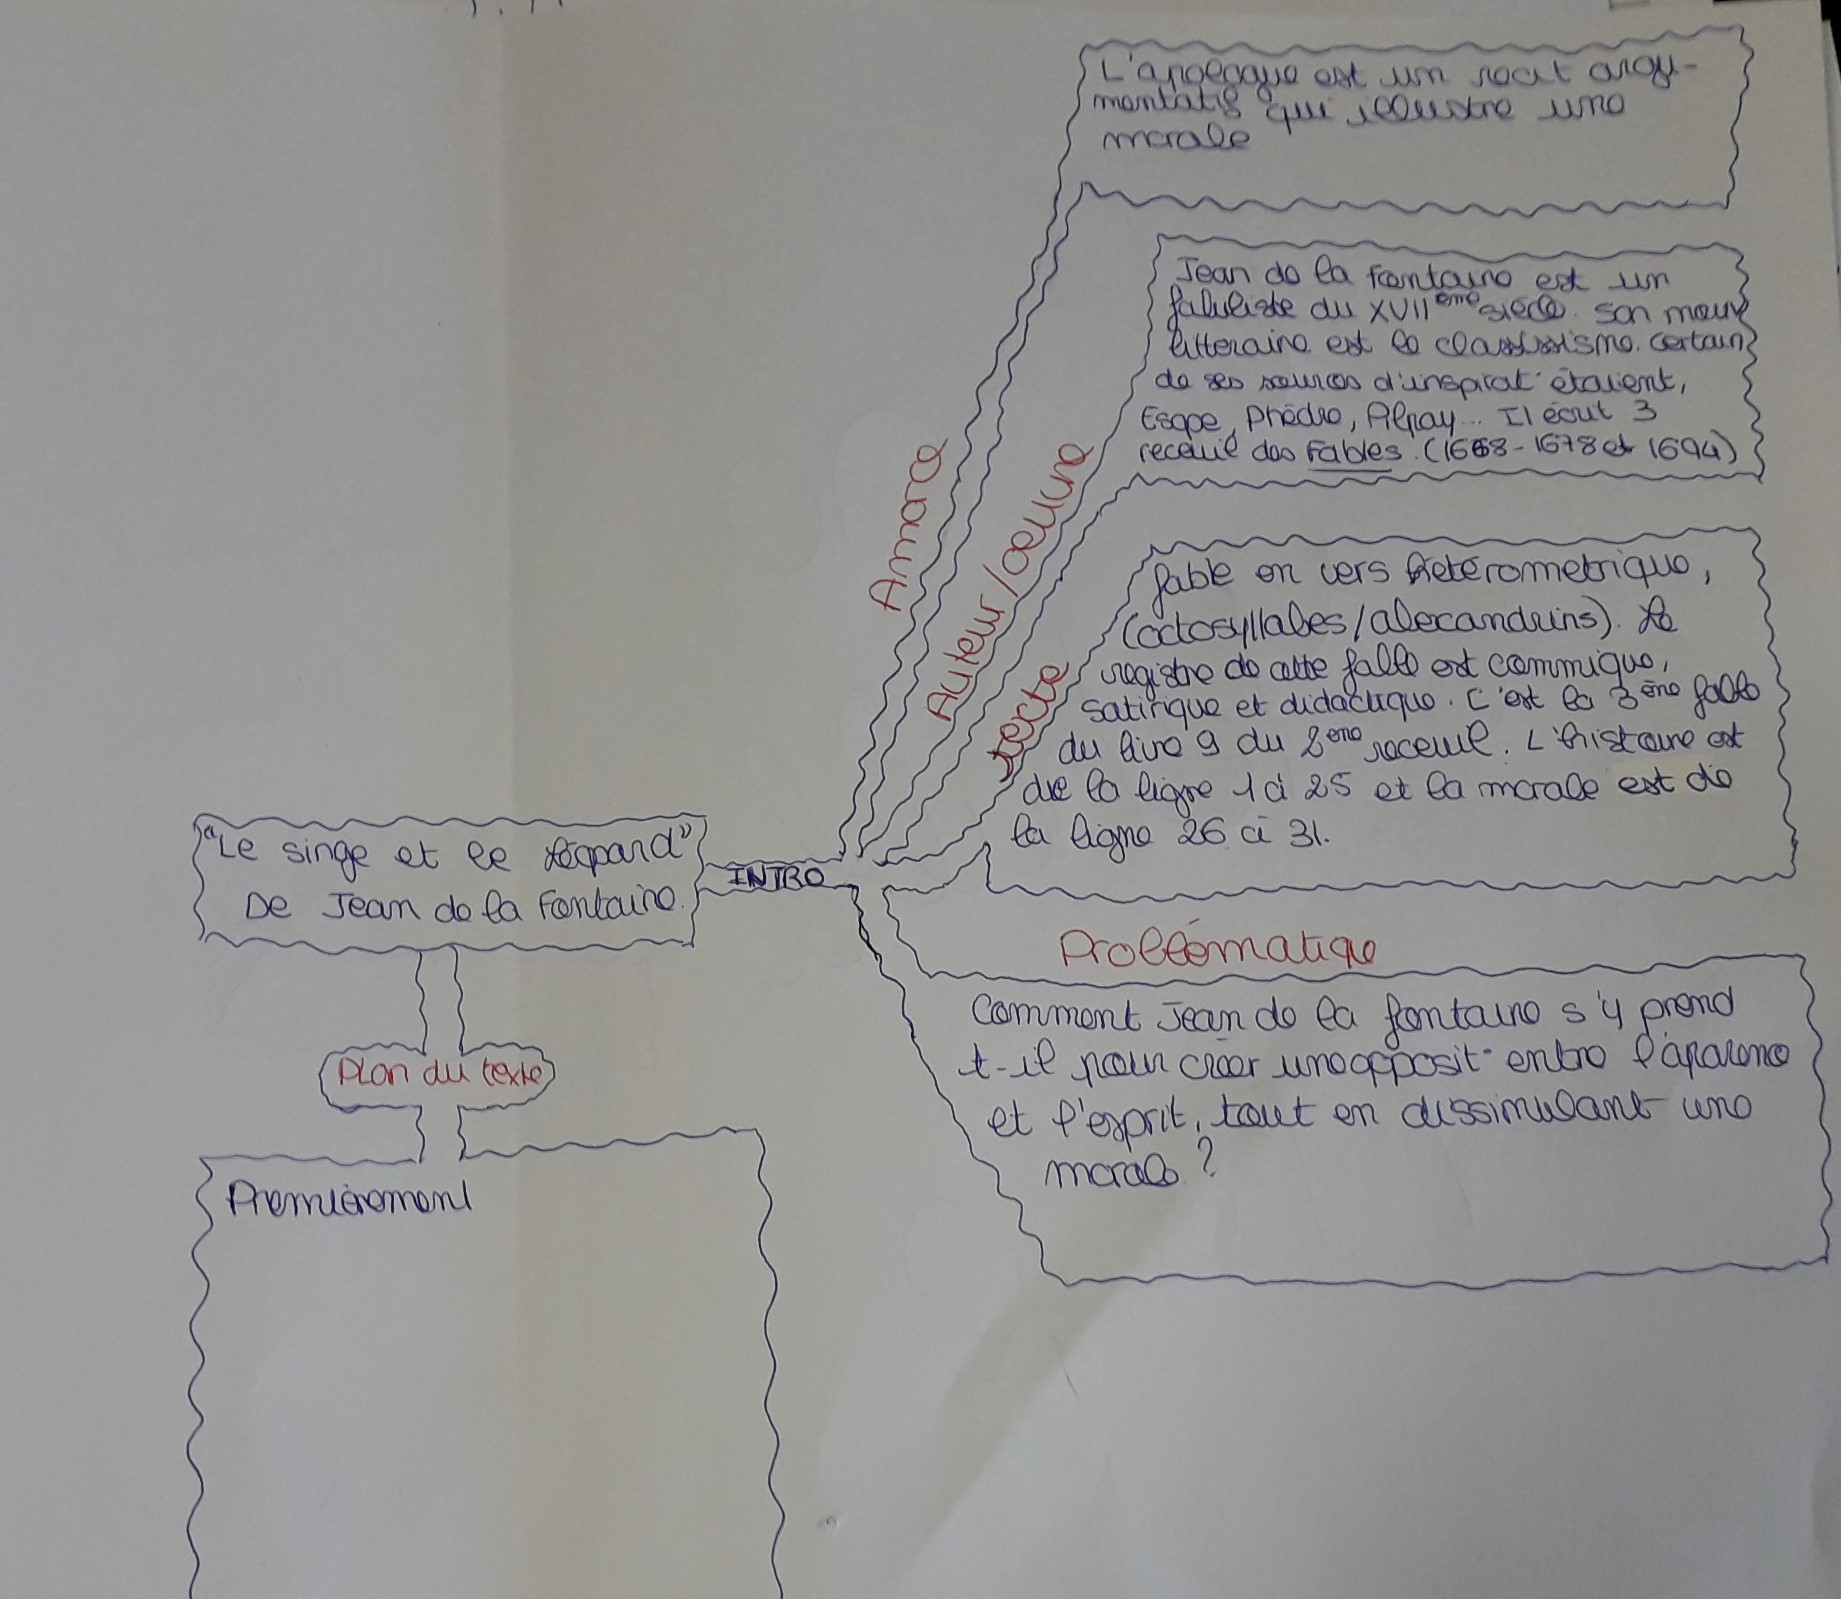 L'apologue est un récit argu-
mentatif qui illustre une
morale
Amorce
Jean de la Fontaine est un
fabuliste du XVIIème siècle. Son mouv
litteraire est le classissisme. Certain
de ses sources d'inspirat° étaient,
Esope, Phèdre, Pilpay... Il écrit 3
receuil des Fables. (1668-1678 et 1694)
Auteur/oeuvre
fable en vers hétérometrique,
(octosyllabes/alexandrins). Le
registre de cette fable est commique,
satirique et didactique. C'est la 3ème fable
du livre 9 du 2ème receuil. L'histoire est
de la ligne 1 à 25 et la morale est de
la ligne 26 à 31.
texte
"Le singe et le Léopard"
De Jean de la Fontaine.
INTRO
Problématique
Comment Jean de la fontaine s'y prend
t-il pour créer une opposit° entre l'aparence
et l'esprit, tout en dissimulant une
morale ?
Plan du texte
Premièrement